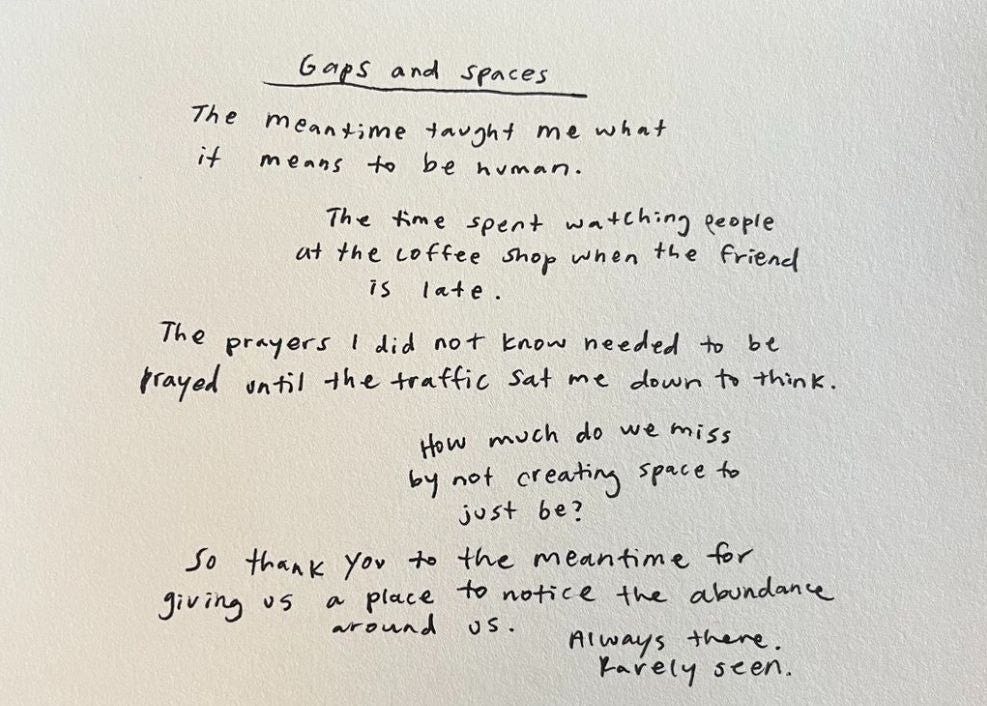 Gaps and spaces
The meantime taught me what
it means to be human.
The time spent watching people
at the coffee shop when the friend
is late.
The prayers I did not know needed to be
prayed until the traffic sat me down to think.
How much do we miss
by not creating space to
just be?
So thank you to the meantime for
giving us a place to notice the abundance
around us.
Always there.
Rarely seen.